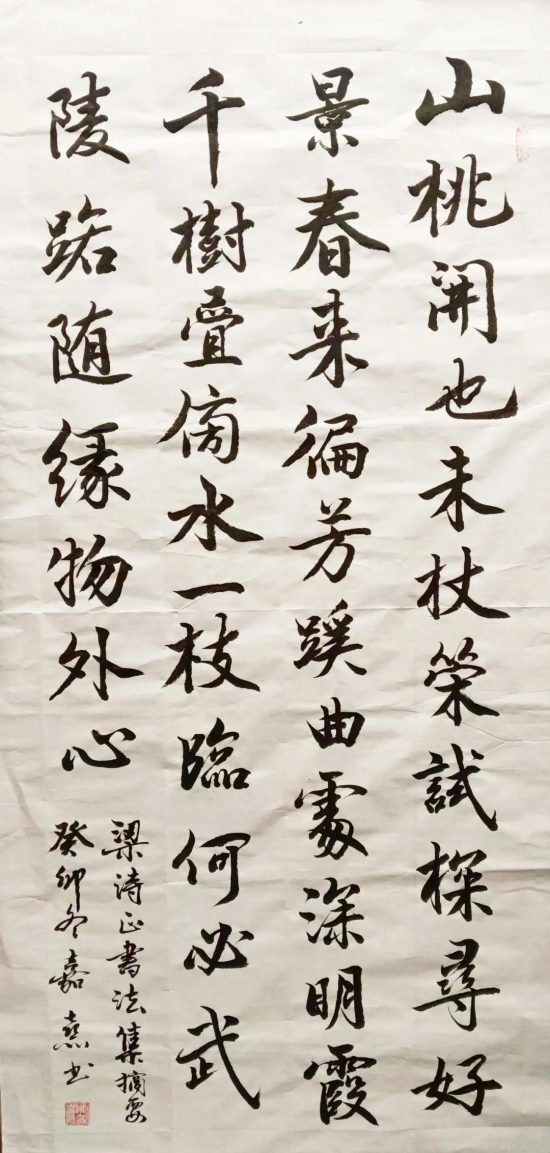 山桃開也未杖策試探尋好
景春來徧芳蹊曲處深明霞
千樹疊傍水一枝臨何必武
陵踞随緣物外心
梁诗正書法集摘要
癸卯冬嘉熹书